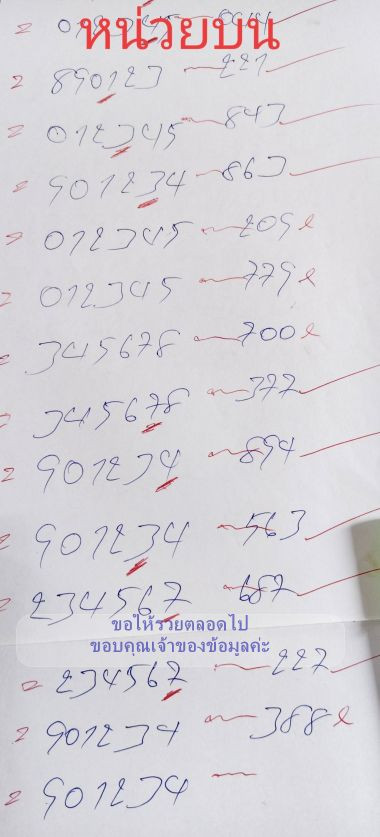 หน่วยบน
890123 221
012345 843
901234 863
012345 209
012345 779
345678 700
345678 377
901234 894
901234 563
234567 687
ขอให้รวยตลอดไป
ขอบคุณเจ้าของข้อมูลค่ะ
234567 227
901234 388
901234